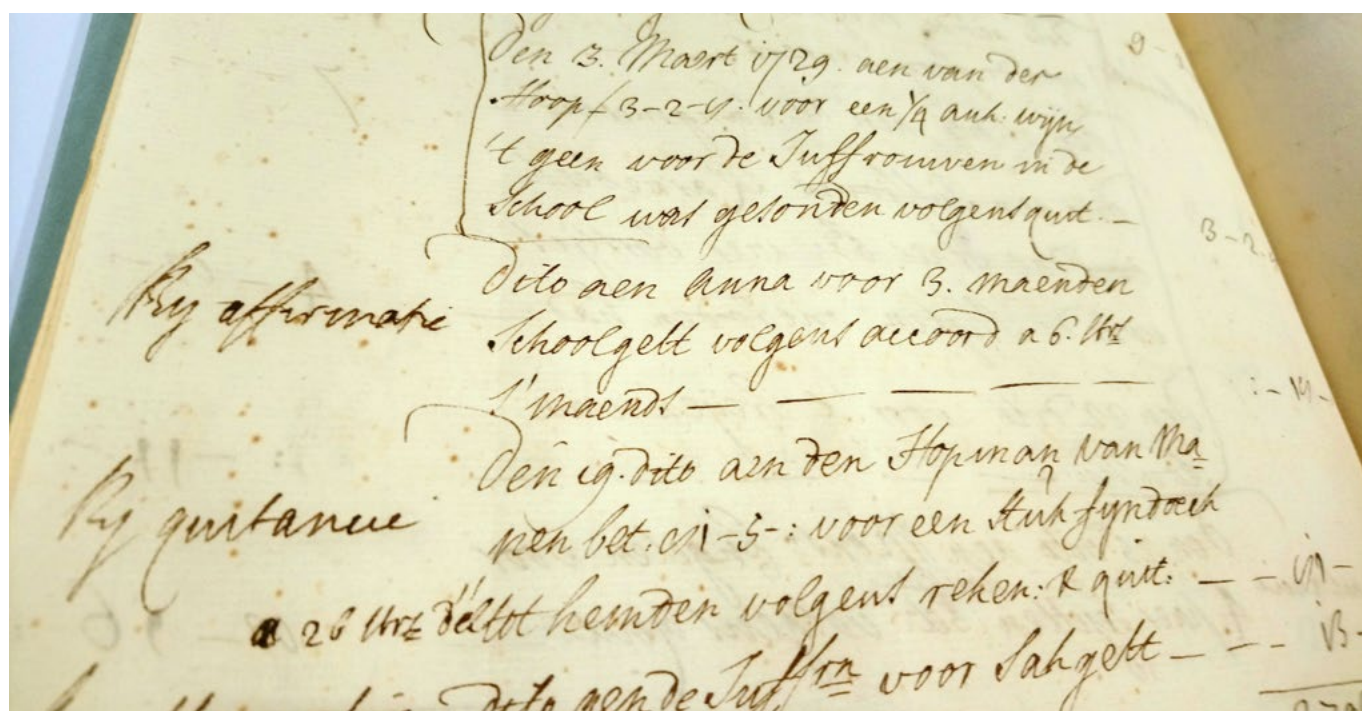 Den 3. Maert 1729. aen van der
Hoop f 3-2-4. voor een 1/4 ank. wijn
't geen voor de Juffrouwen in de
School was gesonden volgens quit. —
3-2
By affirmatie
Dito aen Anna voor 3. maenden
Schoolgelt volgens accoord a 6. str
s' maends — — — — —
Den 19. dito aen den Hopman van Ma
By quitancie
nen bet. voor een stuk fyndoek
a 26 str d'el tot hemden volgens reken: & quit: — —
dito aen de Juffrn voor Sakgelt — — —